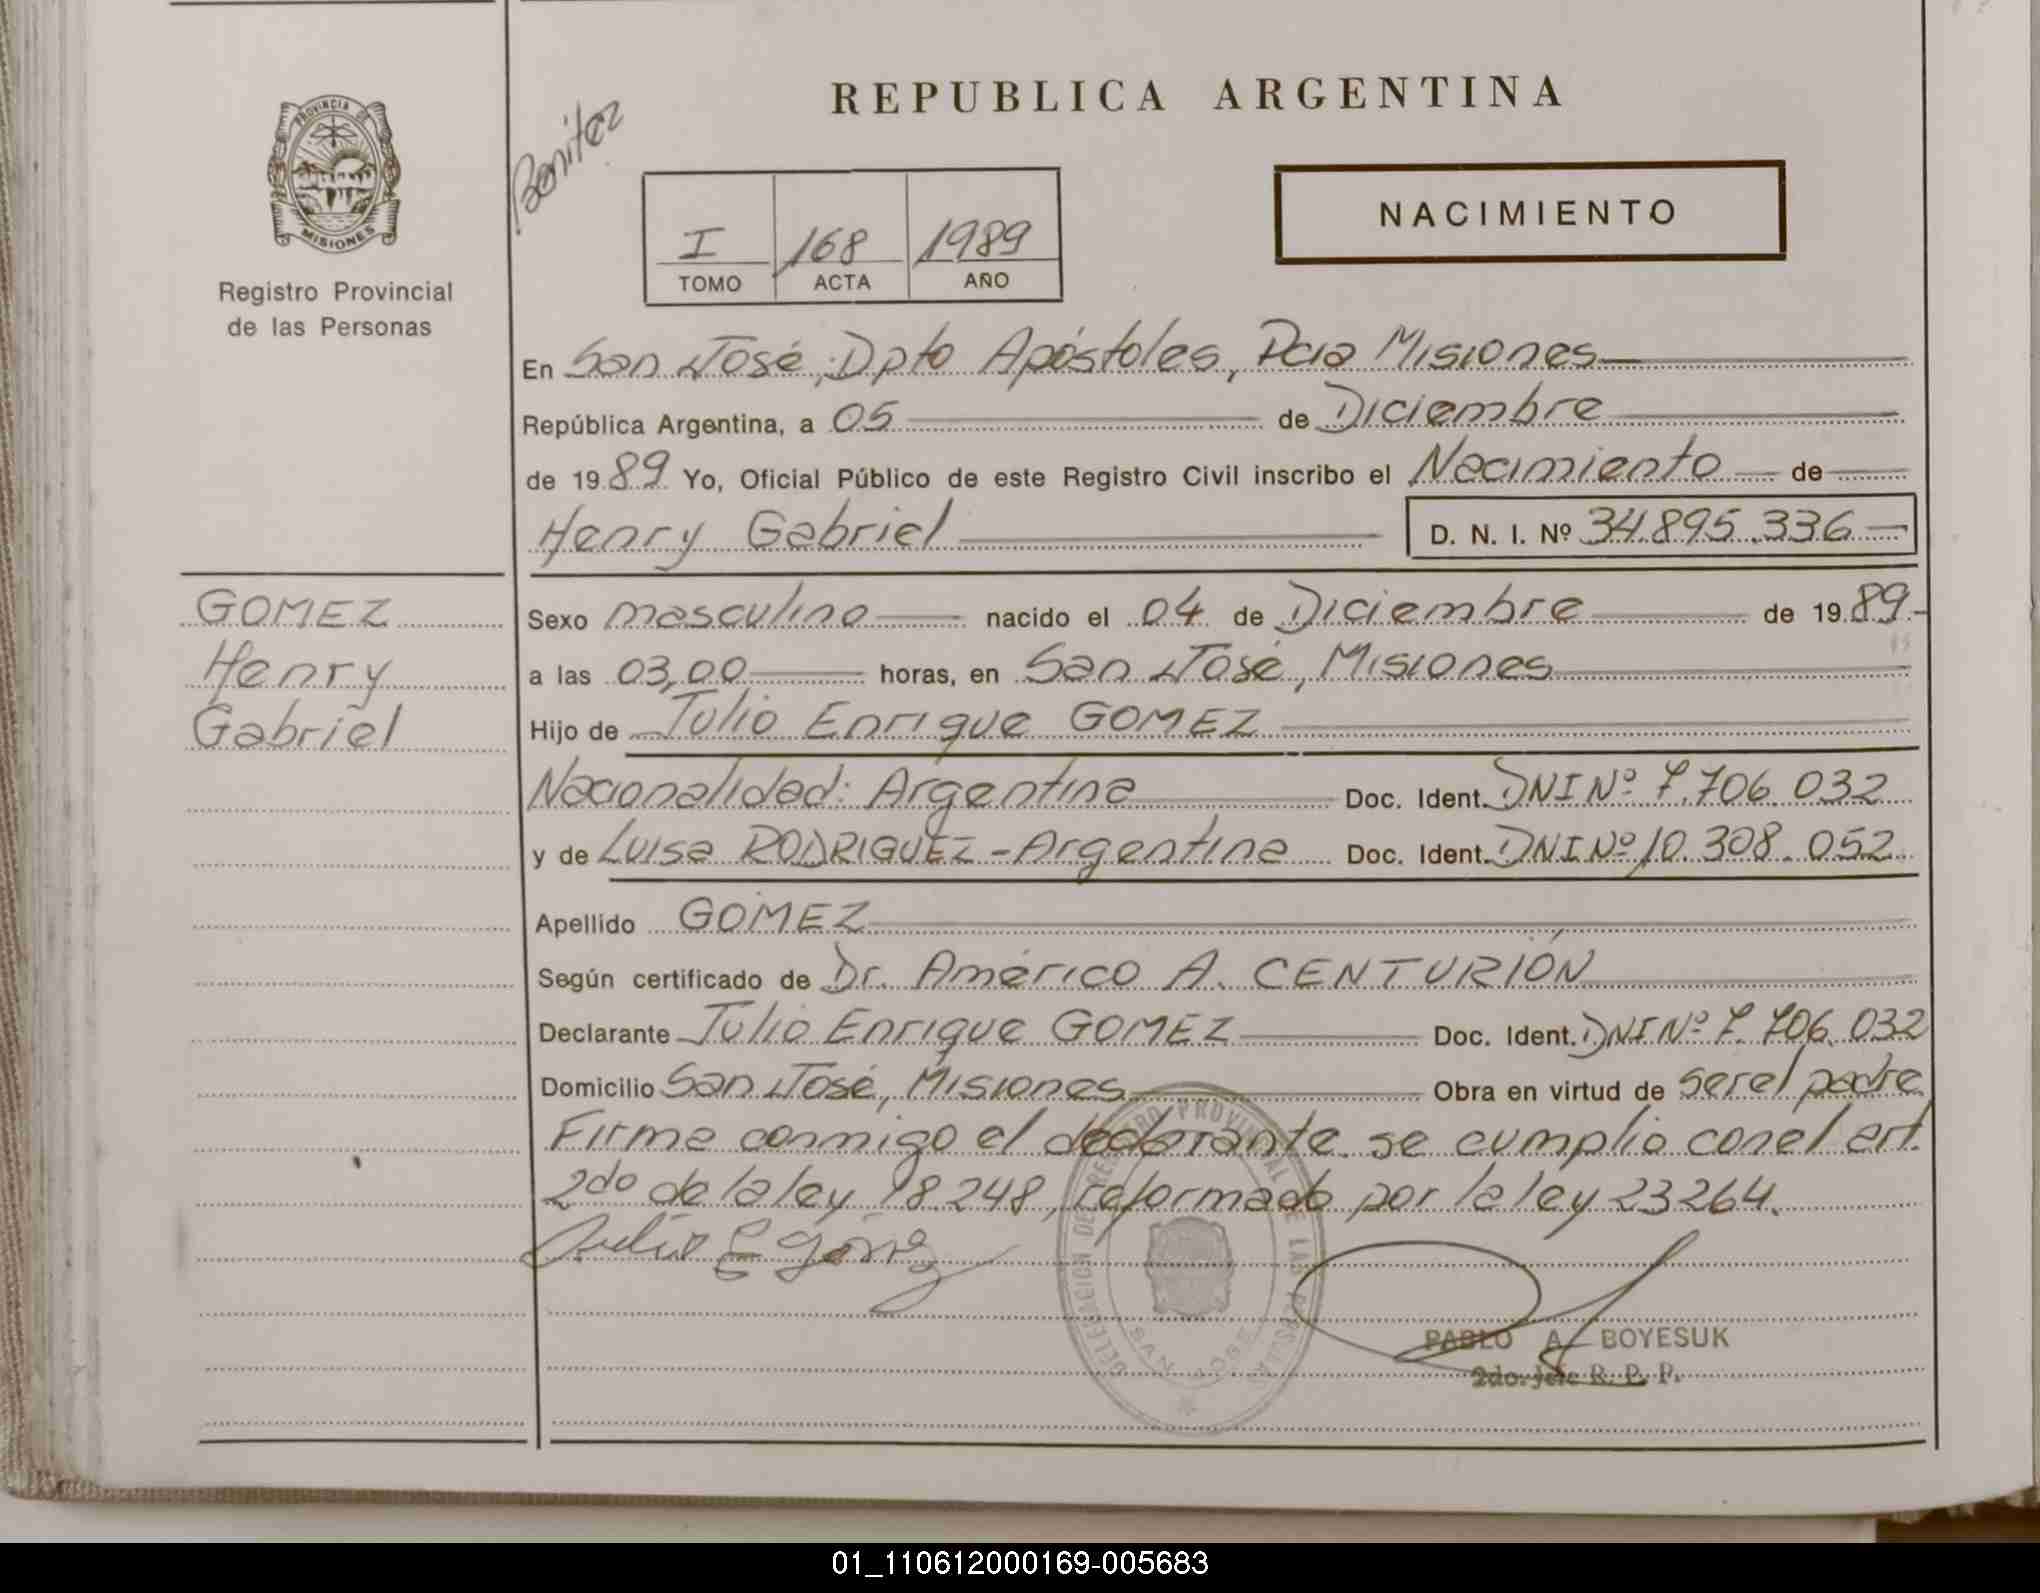 REPUBLICA ARGENTINA
PROVINCIA DE
MISIONES
Registro Provincial
de las Personas
Benitez
I 168 1989
TOMO ACTA AÑO
NACIMIENTO
En San José, Dpto Apóstoles, Pcia Misiones
República Argentina, a 05 de Diciembre
de 1989 Yo, Oficial Público de este Registro Civil inscribo el Nacimiento de
Henry Gabriel D. N. I. Nº 34.895.336
GOMEZ
Henry
Gabriel
Sexo masculino nacido el 04 de Diciembre de 1989
a las 03,00 horas, en San José, Misiones
Hijo de Julio Enrique GOMEZ
Nacionalidad: Argentina Doc. Ident. DNI Nº 7.706.032
y de Luisa RODRIGUEZ - Argentina Doc. Ident. DNI Nº 10.308.052
Apellido GOMEZ
Según certificado de Dr. Américo A. CENTURIÓN
Declarante Julio Enrique GOMEZ Doc. Ident. DNI Nº 7.706.032
Domicilio San José, Misiones Obra en virtud de ser el padre
Firma conmigo el declarante. se cumplio con el art.
2do de la ley 18.248, reformado por la ley 23264.
Julio E Gómez
DELEGACION DEL REGISTRO PROVINCIAL DE LAS PERSONAS
SAN JOSE
PABLO A. BOYESUK
2do. Jefe R. P. P.
01_110612000169-005683